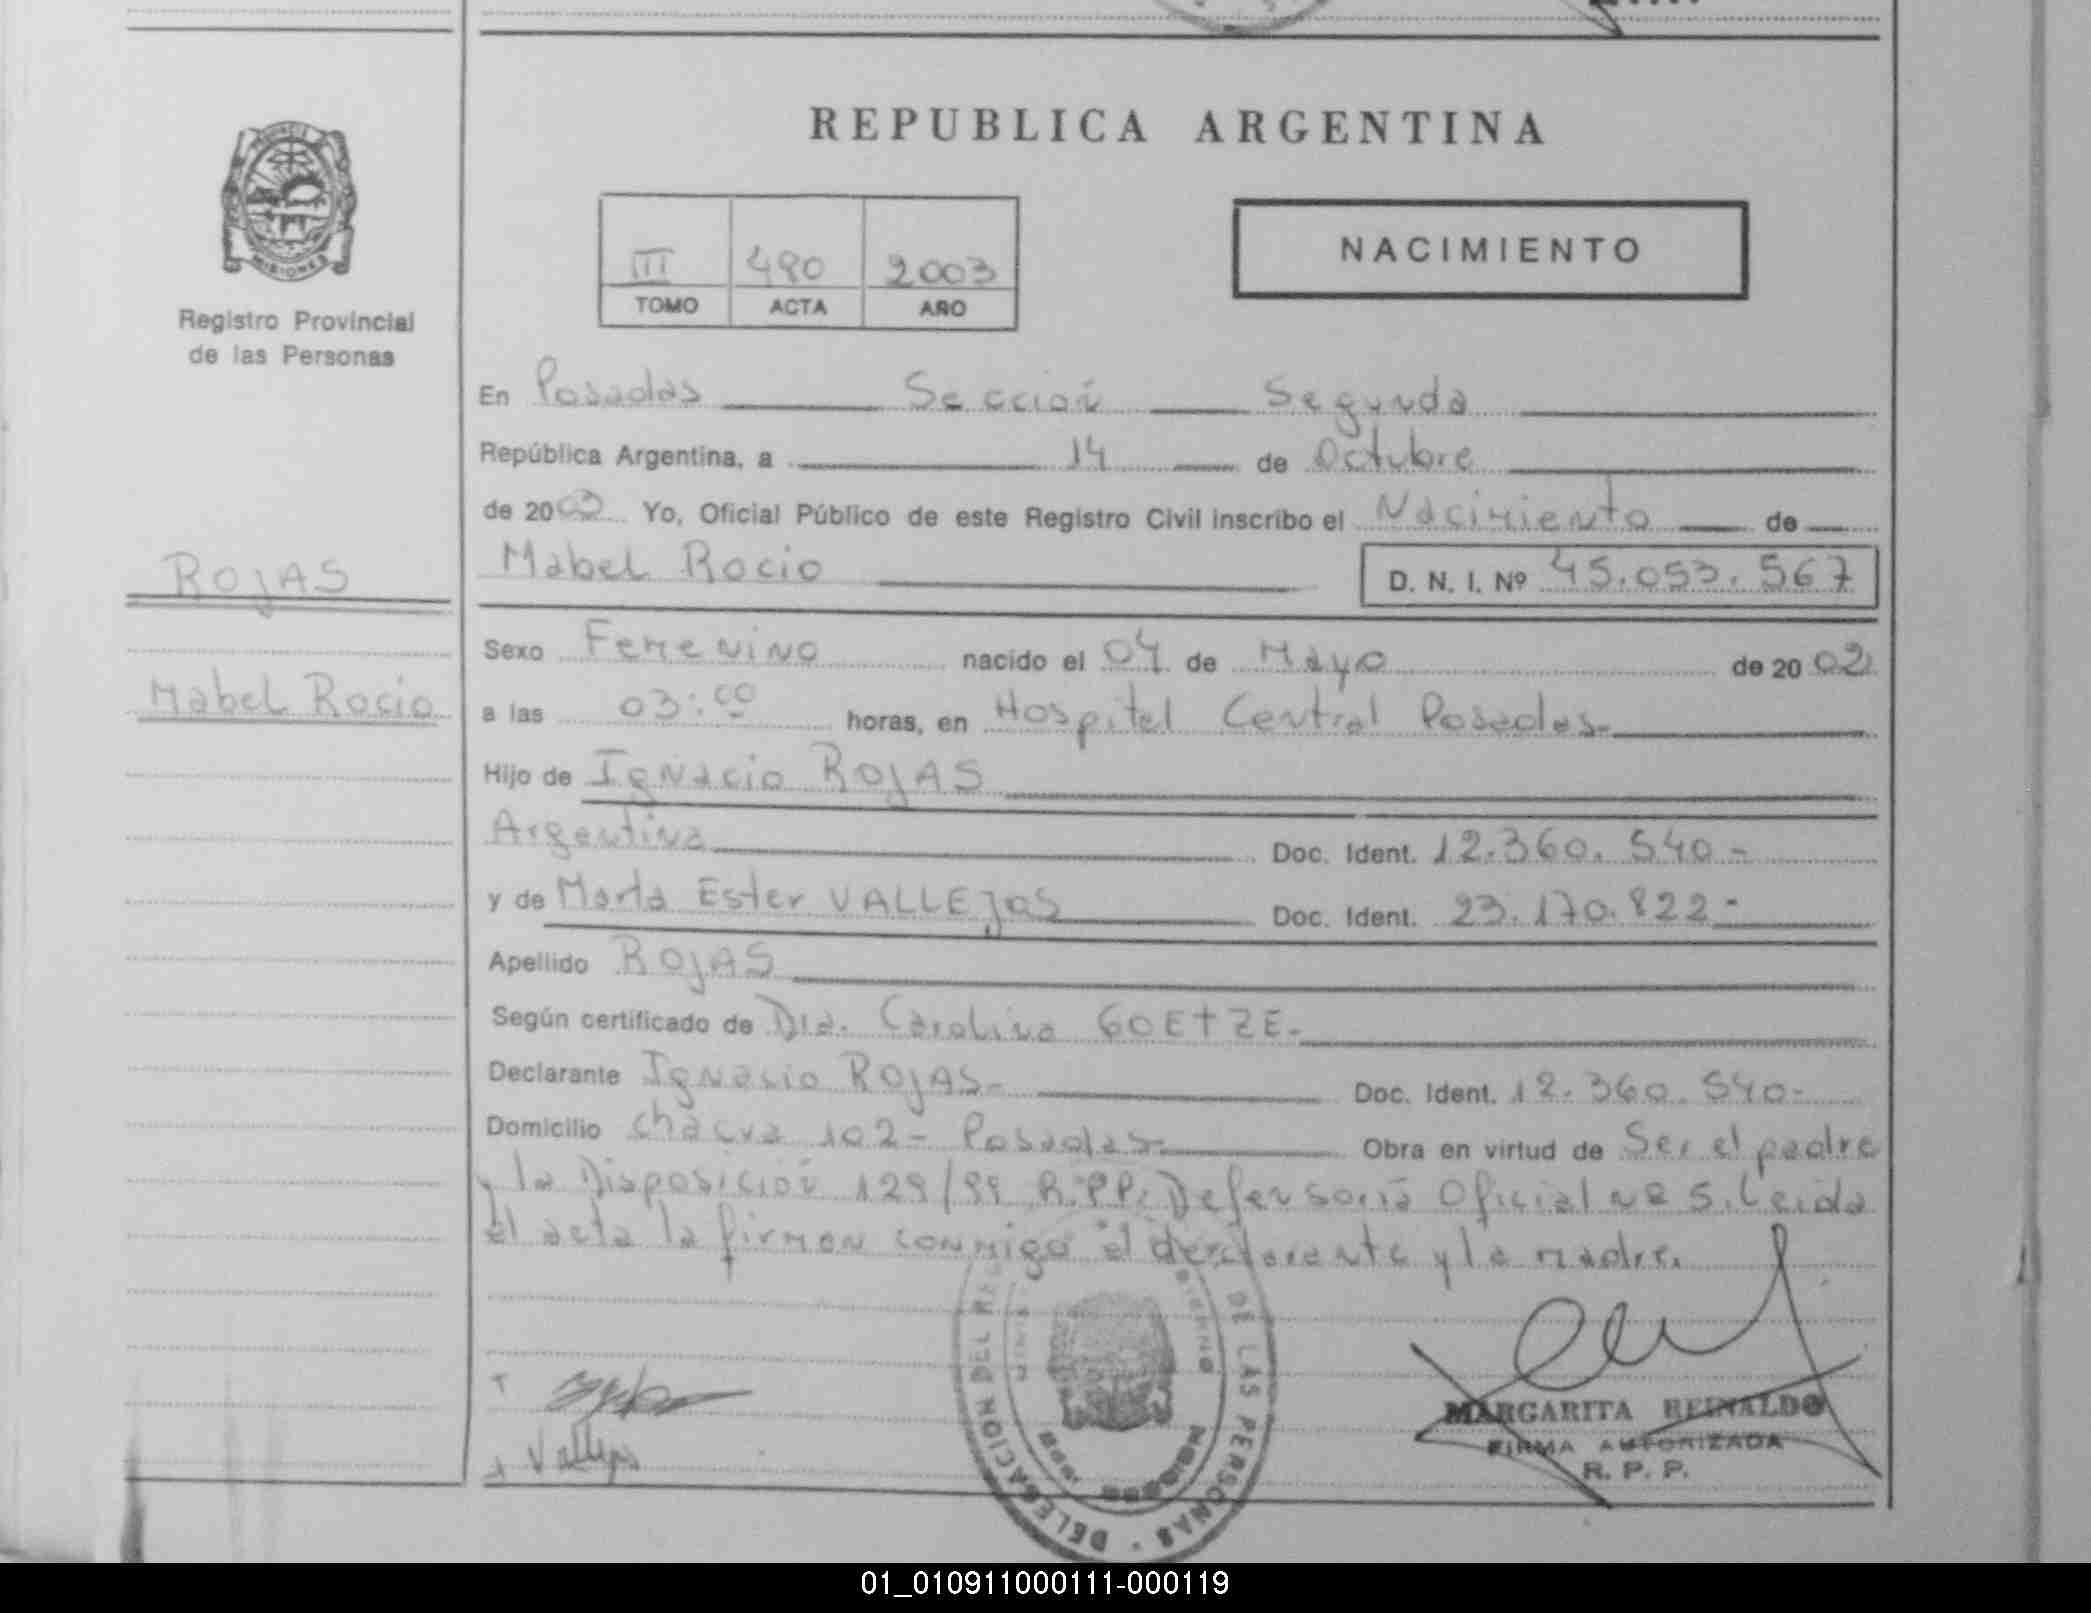 REPUBLICA ARGENTINA
MISIONES
Registro Provincial
de las Personas
III 490 2003
TOMO ACTA AÑO
NACIMIENTO
En Posadas Sección Segunda
República Argentina, a 14 de Octubre
de 2003 Yo, Oficial Público de este Registro Civil inscribo el Nacimiento de
Mabel Rocio D. N. I. Nº 45.053.567
ROJAS
Mabel Rocio
Sexo Femenino nacido el 04 de Mayo de 2002
a las 03:00 horas, en Hospital Central Posadas-
Hijo de Ignacio ROJAS
Argentina Doc. Ident. 12.360.540-
y de Marta Ester VALLEJOS Doc. Ident. 23.170.822-
Apellido ROJAS
Según certificado de Dra. Carolina GOETZE-
Declarante Ignacio ROJAS- Doc. Ident. 12.360.540-
Domicilio Chacra 102- Posadas- Obra en virtud de Ser el padre
y la Disposición 129/99 R.P.P. Defensoria Oficial Nº 5. Leida
el acta la firman conmigo el declarante y la madre.
DELEGACION DEL DE LAS PERSONAS
Vallejos
MARGARITA REINALDO
FIRMA AUTORIZADA
R. P. P.
01_010911000111-000119